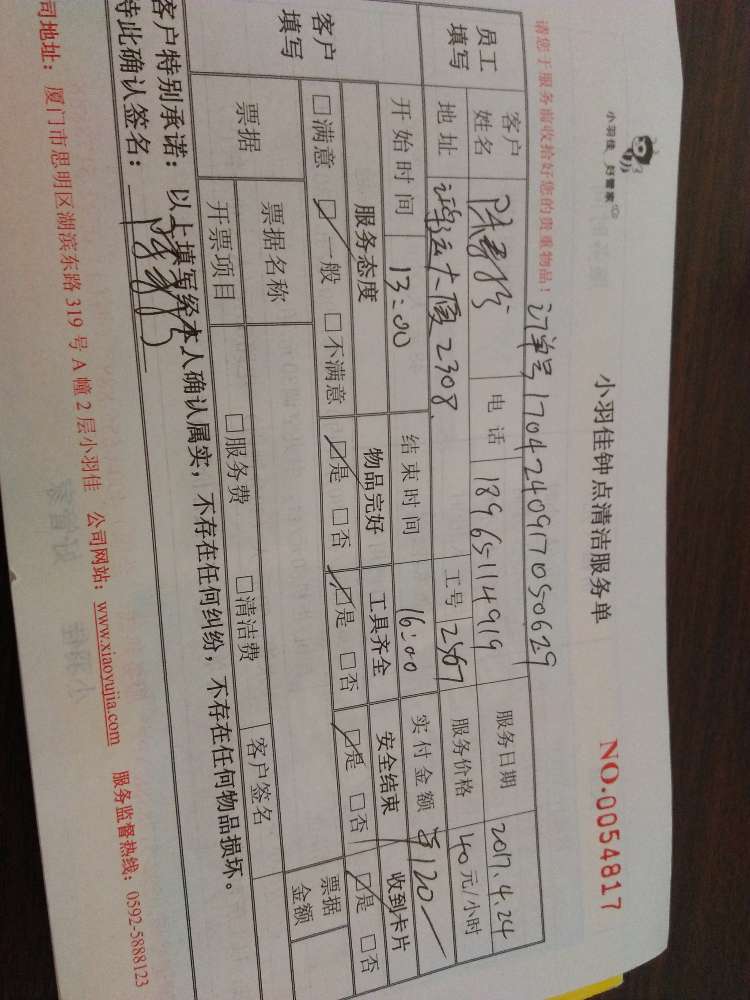 小羽佳 好管家
小羽佳钟点清洁服务单
NO.0054817
请您于服务前收拾好您的贵重物品！
订单号1704240917050629
员工填写
客户姓名
电话 18965114919
服务日期 2017.4.24
地址 鸿运大厦2308
工号 2567
服务价格 40元/小时
开始时间 13:00
结束时间 16:00
实付金额 ¥120
客户填写
服务态度 物品完好 工具齐全 安全结束 收到卡片
□满意 ☑一般 □不满意 ☑是 □否 ☑是 □否 ☑是 □否 ☑是 □否
票据
票据名称
客户签名
票据金额
开票项目 □服务费 □清洁费
客户特别承诺：以上填写经本人确认属实，不存在任何纠纷，不存在任何物品损坏。
特此确认签名：
司地址：厦门市思明区湖滨东路319号A幢2层小羽佳 公司网站：www.xiaoyujia.com 服务监督热线：0592-5888123